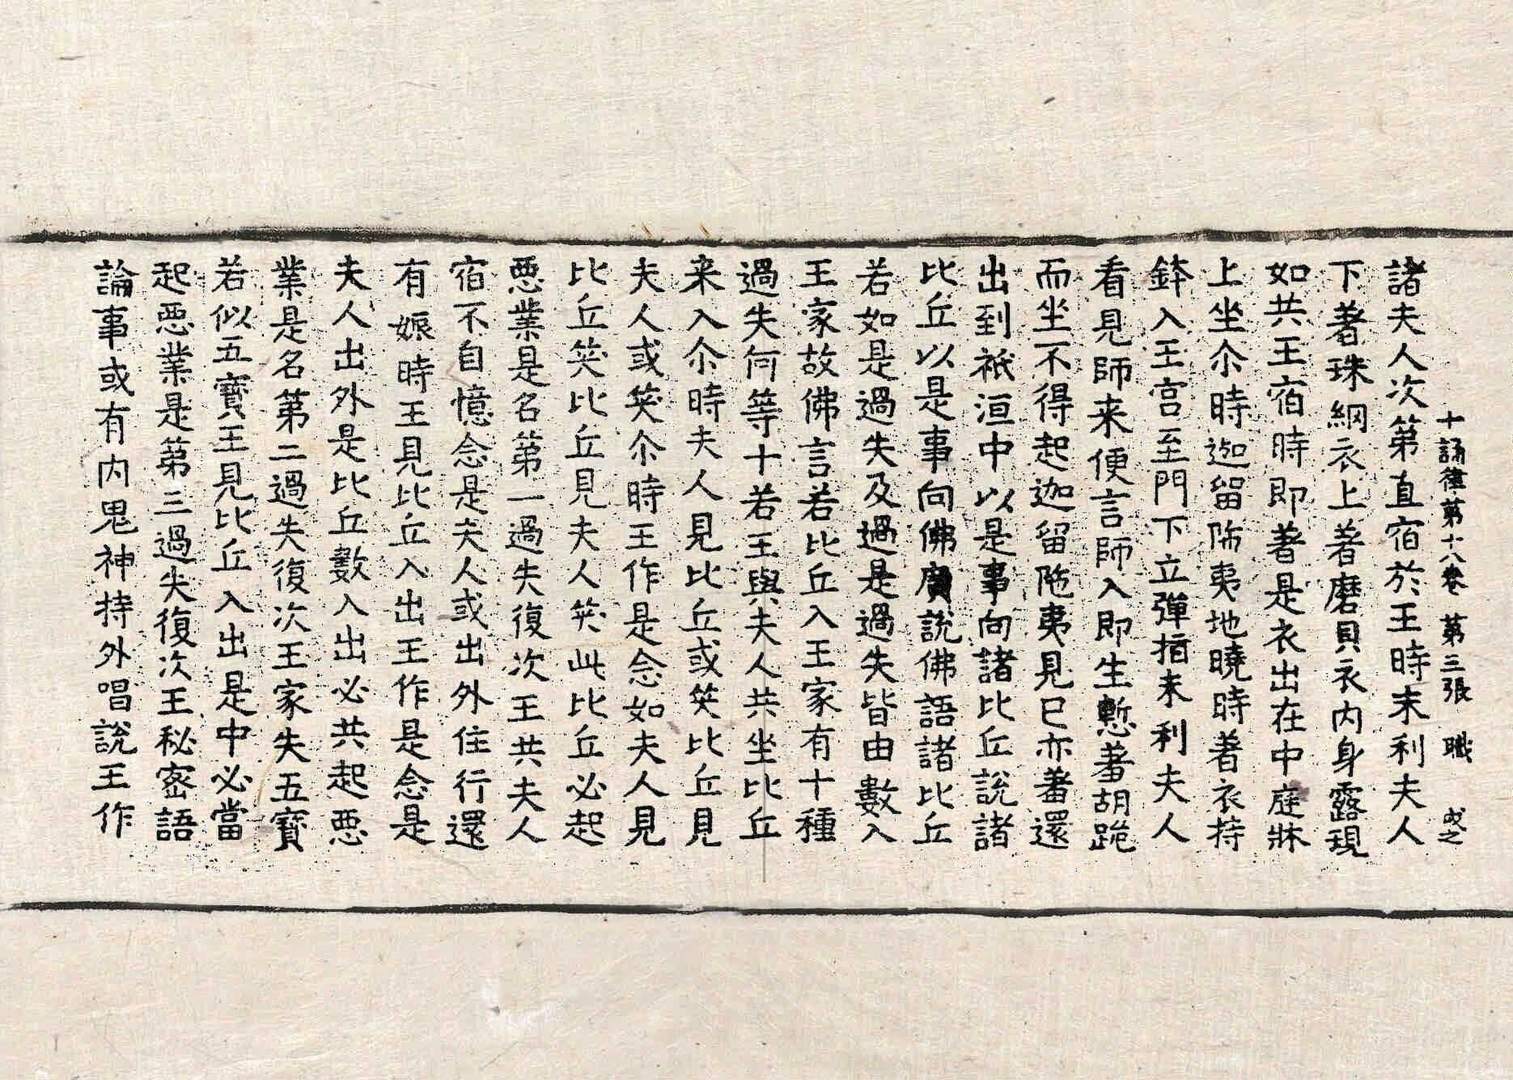 十誦律第十八卷 第三張 職 戌之
諸夫人次第直宿於王時末利夫人
下著珠網衣上著磨貝衣内身露現
如共王宿時即著是衣出在中庭牀
上坐尒時迦留陁夷地曉時著衣持
鉢入王宮至門下立彈指末利夫人
看見師来便言師入即生慙著胡跪
而坐不得起迦留陁夷見已亦著還
出到祇洹中以是事向諸比丘說諸
比丘以是事向佛廣說佛語諸比丘
若如是過失及過是過失皆由數入
王家故佛言若比丘入王家有十種
過失何等十若王與夫人共坐比丘
来入尒時夫人見比丘或笑比丘見
夫人或笑尒時王作是念如夫人見
比丘笑比丘見夫人笑此比丘必起
惡業是名第一過失復次王共夫人
宿不自憶念是夫人或出外住行還
有娠時王見比丘入出王作是念是
夫人出外是比丘數入出必共起惡
業是名第二過失復次王家失五寶
若似五寶王見比丘入出是中必當
起惡業是第三過失復次王秘密語
論事或有内鬼神持外唱說王作